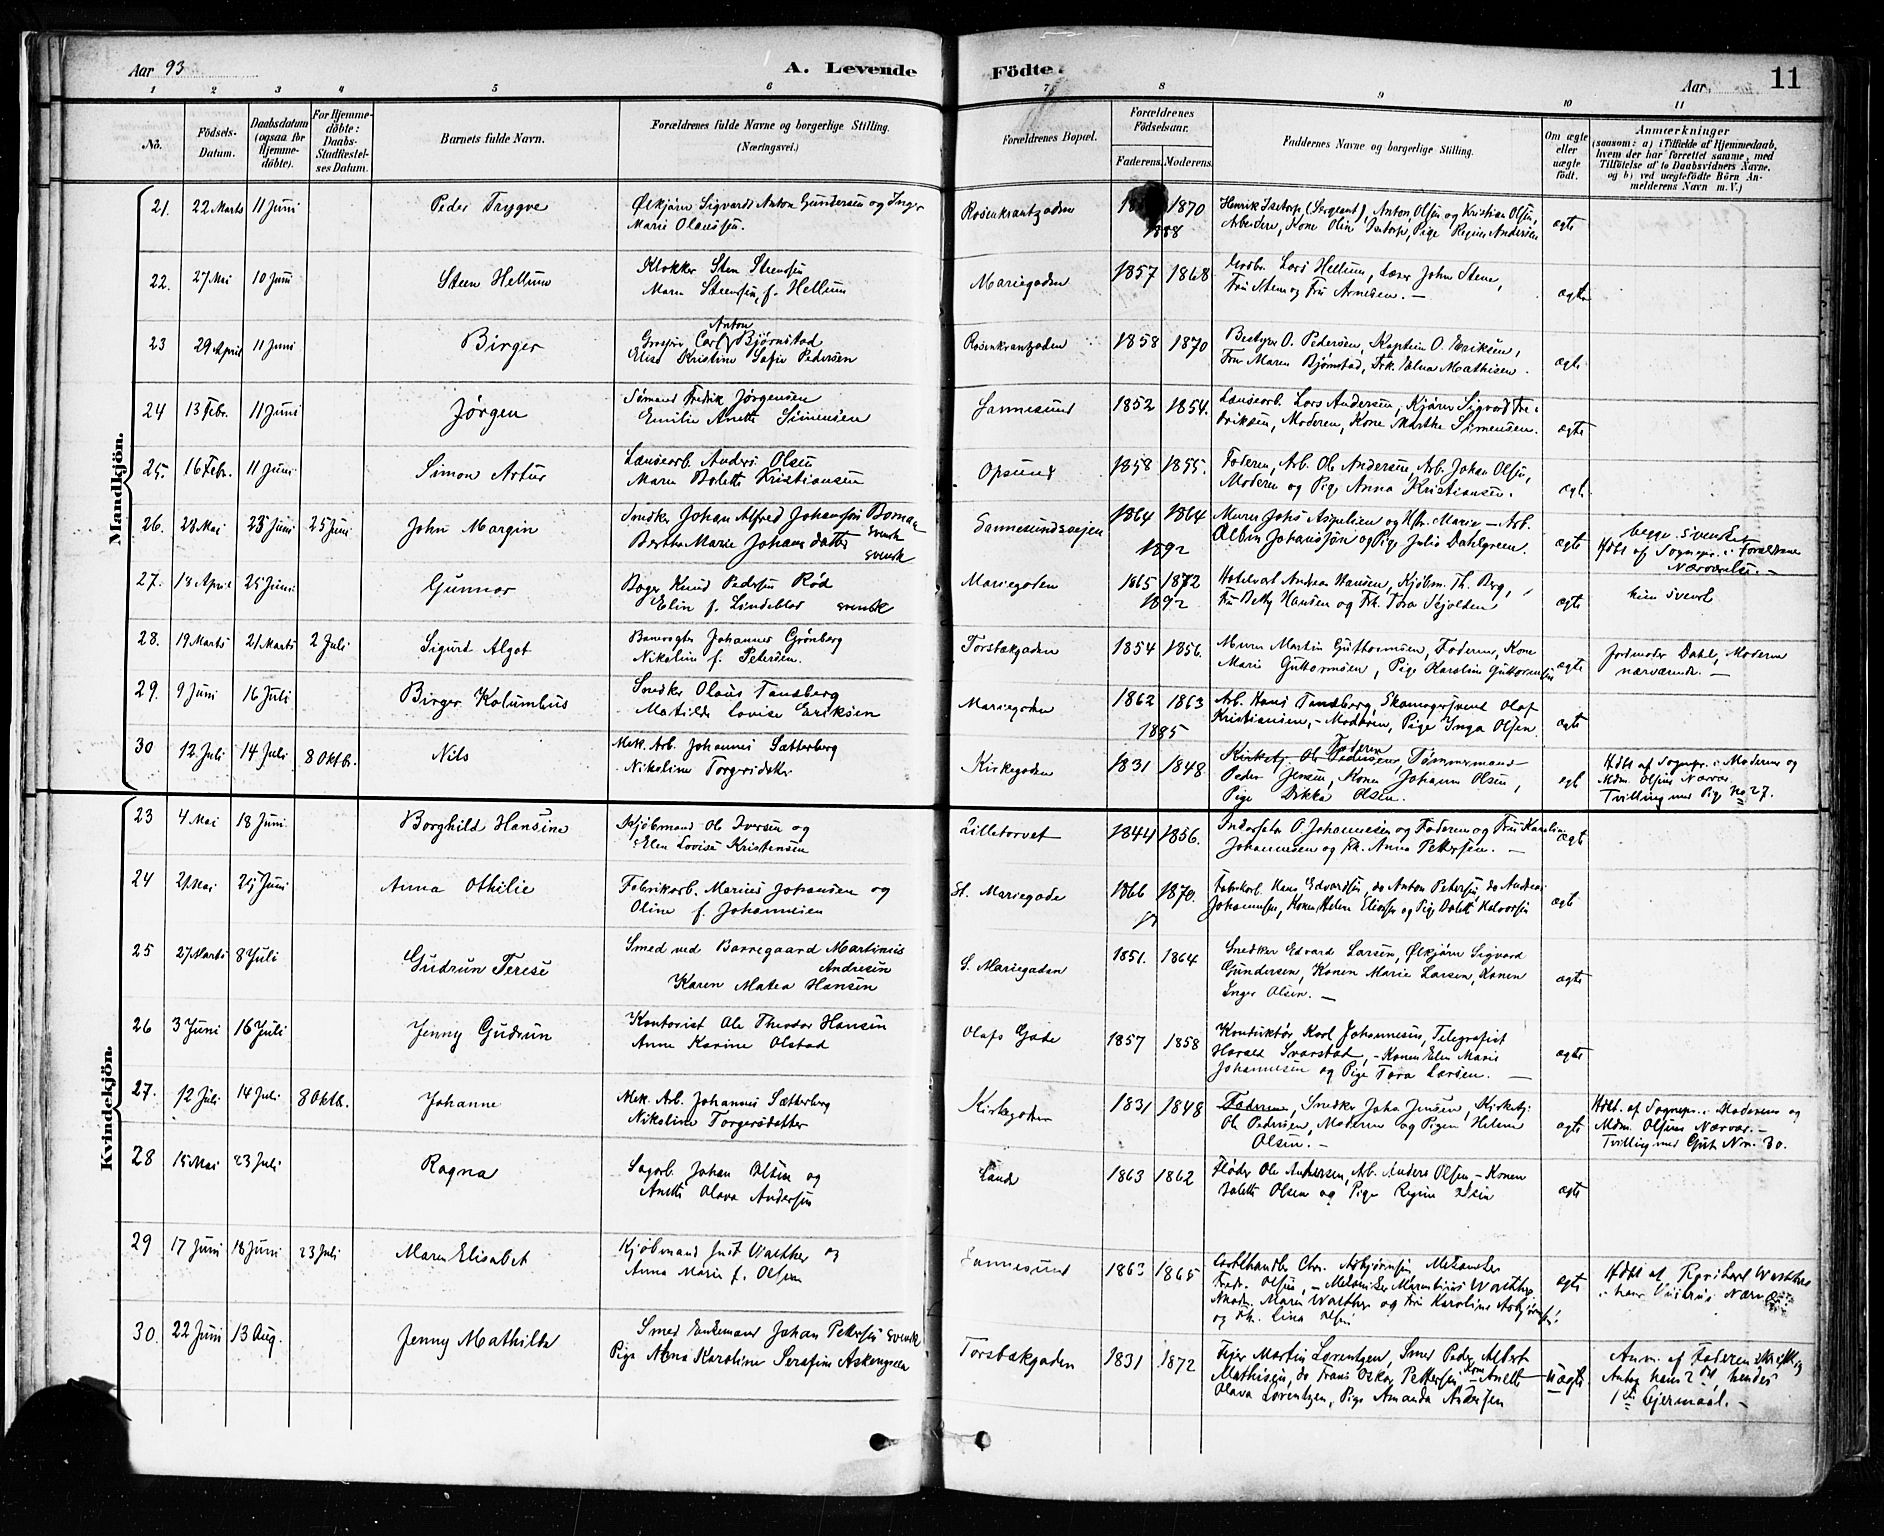 Aar 93
A. Levende
Födte.
Aar
11
1 2 3 4 5 6 7 8 9 10 11
No.
Födsels-Datum.
Daabsdatum (ogsaa for Hjemmedöbte).
For Hjemmedöbte: Daabs-Stadfæstelses Datum.
Barnets fulde Navn.
Forældrenes fulde Navne og borgerlige Stilling.
(Næringsvei.)
Forældrenes Bopæl.
Forældrenes Födselsaar.
Faderens. Moderens.
Faddernes Navne og borgerlige Stilling.
Om ægte eller uægte födt.
Anmærkninger
(saasom: a) i Tilfælde af Hjemmedaab, hvem der har forrettet samme, med Tilföielse af to Daabsvidners Navne, og b) ved uægtefödte Börn Anmelderens Navn m. V.)
Mandkjön.
21. 22 Marts 11 Juni Peder Trygve Ølkjører Sigvardt Anton Gundersen og Inger
Marie Olausson. Rosenkrantzgaden 1870 1888
Henrik (Sergeant), Anton Olsen og Kristian Olsen,
Arbeidere, Kone Oline Pige Regine Andersen ægte
22. 27 Mai 10 Juni Steen Hellum Klokker Sten Steensen
Maren Steensen, f. Hellum Mariegaden 1857 1868
Lars Hellum, Læser John Stene,
Fru Stene og Fru Arnesen. — ægte
23 29 April 11 Juni Birger Carl Anton Bjørnstad
Elise Kristine Sofie Pedersen Rosenkrantzgaden 1858 1870
Bestyrer O. Pedersen, Kaptein O. Eriksen,
Fru Maren Bjørnstad, Frk. Elna Mathisen. ægte
24 13 Febr. 11 Juni Jörgen Sømand Fredrik Jørgensen
Emilie Anette Simensen Sannesund 1852 1854.
Lænsearb. Lars Andersen, Kjører Sigvard Fredriksen, Moderen, Kone Marthe Simensen. ægte
25. 16 Febr. 11 Juni Simon Artur Lænsearb. Anders Olsen
Maren Bolette Kristiansen Opsund 1858 1855.
Faderen, Arb. Ole Andersen, Arb. Johan Olsen,
Moderen og Pige Anna Kristiansen. ægte
26. 28 Mai 23 Juni 25 Juni John Margin Snedker Johan Alfred Johansson Boman svensk
Berthe Marie Johansdatter svensk Sannesundsveien 1864 1864 1892
Murer Johs Aspelien og Hstr. Marie — Arb.
Albin Johansson og Pige Julie Dahlgreen. ægte
begge svenske
Hdbt af Sognepr. i Forældrenes
Nærværelse. —
27. 18 April 25 Juni Gunnar Bager Knud Pedersen Rød
Elin f. Lindeblad svensk Mariegaden 1865 1872 1892
Hotelvært Andreas Hansen, Kjøbm. Th. Berg,
Fru Betty Hansen og Frk. Tora Skjolden ægte
hun svensk
28. 19 Marts 21 Marts 2 Juli Sigurd Algot Banevogter Johannes Grønberg
Nikoline f. Petersen. Torsbækgaden 1854 1856.
Murer Martin Guttormsen, Faderen, Kone
Marie Guttormsen, Pige Karoline Guttormsen ægte
Jordmoder Dahl, Moderen
nærværende. —
29. 9 Juni 16 Juli Birger Kolumbus Snedker Olaus Tandberg
Matilde Lovise Eriksen Mariegaden 1862 1863 1885
Arb. Hans Tandberg, Skomagersvend Olaf
Kristiansen, — Moderen, Pige Inga Olsen. ægte
30 12 Juli 14 Juli 8 Oktb. Nils Mek. Arb. Johannes Sætterberg
Nikoline Torgersdatter Kirkegaden 1831 1848.
Kirketj. Ole Pedersen, Faderen, Tømmermand
Peder Jensen, Konen Johanne Olsen,
Pige Dikka Olsen. ægte
Hdbt af Sognepr. i Moderens og
Mdm. Olsens Nærvær.
Tvilling med Pige No 27.
Kvindekjön.
23 4 Mai 18 Juni Borghild Hansine Kjøbmand Ole Iversen og
Elen Lovise Kristensen Lilletorvet 1844 1856.
O. Johannesen og Faderen og Fru Karoline
Johannesen og Frk. Anna Pettersen. — ægte
24 2 Mai 25 Juni Anna Othilie Fabrikarb. Marius Johansen og
Oline f. Johannesen St. Mariegade 1866 1870.
Fabrikarb. Hans Edvardsen, do Anton Petersen, do Andreas
Johannesen, Konen Helene Eliassen og Pige Bolette Halvorsen ægte
25 27 Marts 8 Juli Gudrun Terese Smed ved Borregaard Martinius
Andresen
Karen Matea Hansen S. Mariegaden 1851. 1864
Snedker Edvard Larsen, Ølkjører Sigvard
Gundersen, Konen Marie Larsen, Konen
Inger Olsen. — ægte
26 3 Juni 16 Juli Jenny Gudrun Kontorist Ole Theodor Hansen
Anne Karine Olstad Olafs Gade 1857 1858
Konduktør Karl Johannesen, Telegrafist
Harald Svarstad, — Konen Elen Marie
Johannesen og Pige Tora Larsen. — ægte
27. 12 Juli 14 Juli 8 Oktb. Johanne Mek. Arb. Johannes Sætterberg
Nikoline Torgersdatter Kirkegaden 1831 1848
Faderen, Snedker Johs Jensen, Kirketj.
Ole Pedersen, Moderen og Pigen Helene
Olsen. — ægte
Hdbt. af Sognepr. i Moderens og
Mdm. Olsens Nærvær. —
Tvilling med Gut Nr. 30.
28 15 Mai 23 Juli Ragna Sagarb. Johan Olsen og
Anette Olava Andersen Sande 1863 1862
Fløder Ole Andersen, Arb. Anders Olsen — Konen
Bolette Olsen og Pige Regine Olsen ægte
29 17 Juni 18 Juni 23 Juli Maren Elisabet Kjøbmand Just Walther og
Anna Marie f. Olsen Sannesund 1863 1865
Chr. Asbjørnsen,
Fredr. Olsen, — Marentinius Walther
Maren Walther og Fru Karoline Asbjørnsen
og Frk. Lina Olsen. ægte
Hdbt af Walther
i Nærvær
30. 22 Juni 13 Aug. Jenny Mathilde Smed Enkemand Johan Pettersen svensk
Pige Alma Karoline Serafine Askengren Torsbækgaden 1831 1872
Feier Martin Lorentzen, Smed Peder Albert
Mathisen, do Frans Oskar Pettersen — Kone Anette
Olava Lorentzen, Pige Amanda Andersen uægte.
Anm. af Faderen skriftlig
Antog hans 2det, hendes
1ste Leiermaal. —